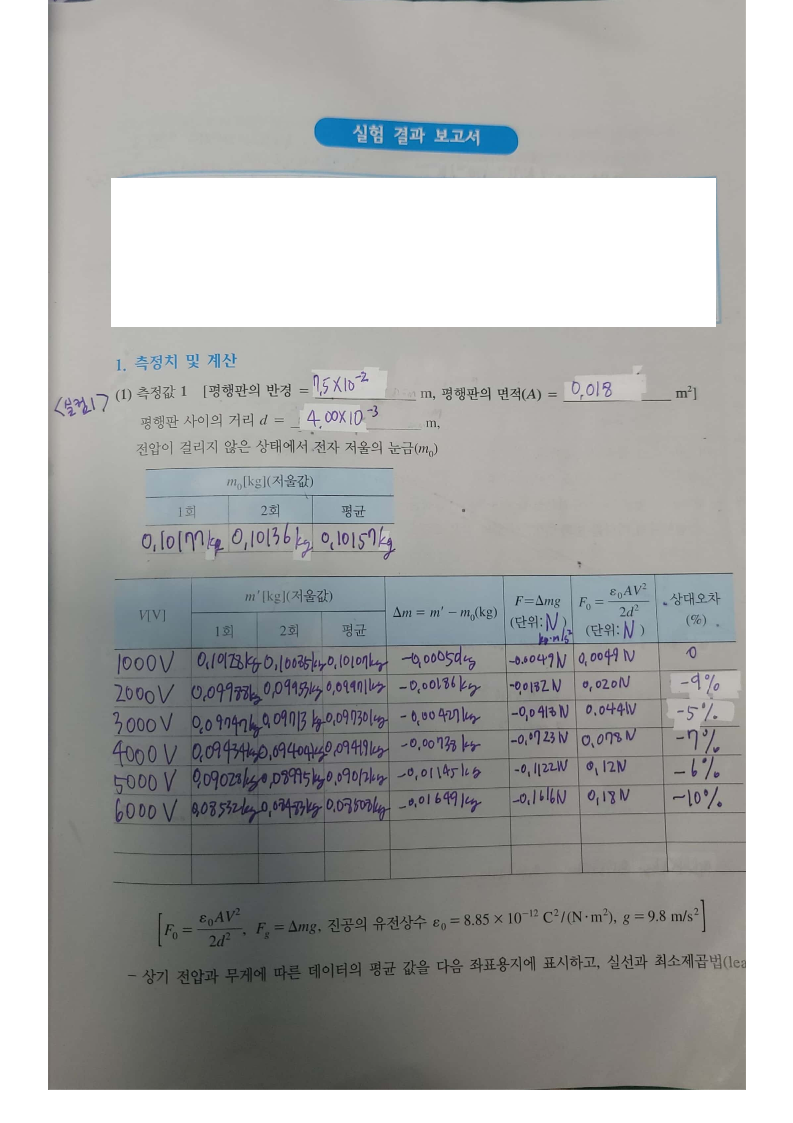 실험 결과 보고서
1. 측정치 및 계산
<실험1> (1) 측정값 1 [평행판의 반경 = 7.5×10⁻² m, 평행판의 면적(A) = 0.018 m²]
평행판 사이의 거리 d = 4.00×10⁻³ m,
전압이 걸리지 않은 상태에서 전자 저울의 눈금(m₀)
m₀[kg](저울값)
1회 2회 평균
0.10177kg 0.10136kg 0.10157kg
V[V] m′[kg](저울값) 1회 2회 평균 Δm = m′ − m₀(kg) F=Δmg (단위: N) kg·m/s² F₀ = ε₀AV²/2d² (단위: N) 상대오차 (%)
1000V 0.10178kg 0.10035kg 0.10107kg -0.0005kg -0.0049N 0.0049N 0
2000V 0.09988kg 0.09953kg 0.09971kg -0.00186kg -0.0182N 0.020N -9%
3000V 0.09747kg 0.09713kg 0.09730kg -0.00427kg -0.0418N 0.044N -5%
4000V 0.09434kg 0.09404kg 0.09419kg -0.00738kg -0.0723N 0.078N -7%
5000V 0.09028kg 0.08995kg 0.09012kg -0.01145kg -0.1122N 0.12N -6%
6000V 0.08532kg 0.08483kg 0.08508kg -0.01649kg -0.1616N 0.18N -10%
[F₀ = ε₀AV²/2d², F_g = Δmg, 진공의 유전상수 ε₀ = 8.85 × 10⁻¹² C²/(N·m²), g = 9.8 m/s²]
- 상기 전압과 무게에 따른 데이터의 평균 값을 다음 좌표용지에 표시하고, 실선과 최소제곱법(lea